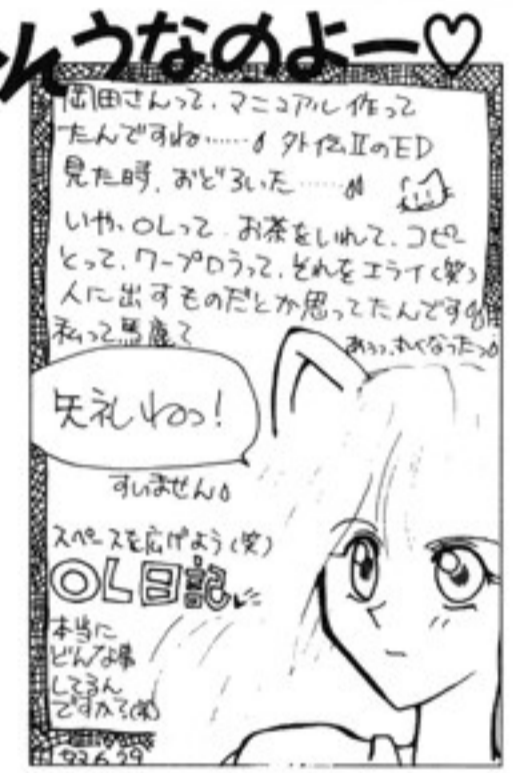 んうなのよー♡
岡田さんって、マニュアル作って
たんですね……♪外伝ⅡのED
見た時、おどろいた……
いや、OLって、お茶をいれて、コピー
とって、ワープロうって、それをエライ(笑)
人に出すものだとか思ってたんです
私って馬鹿て
あぅっ、わくなったっ
失礼ねっ!
すいません
スペースを広げよう(笑)
OL日記
本当に
どんな事
してるん
ですか?(笑)
'93.6.29